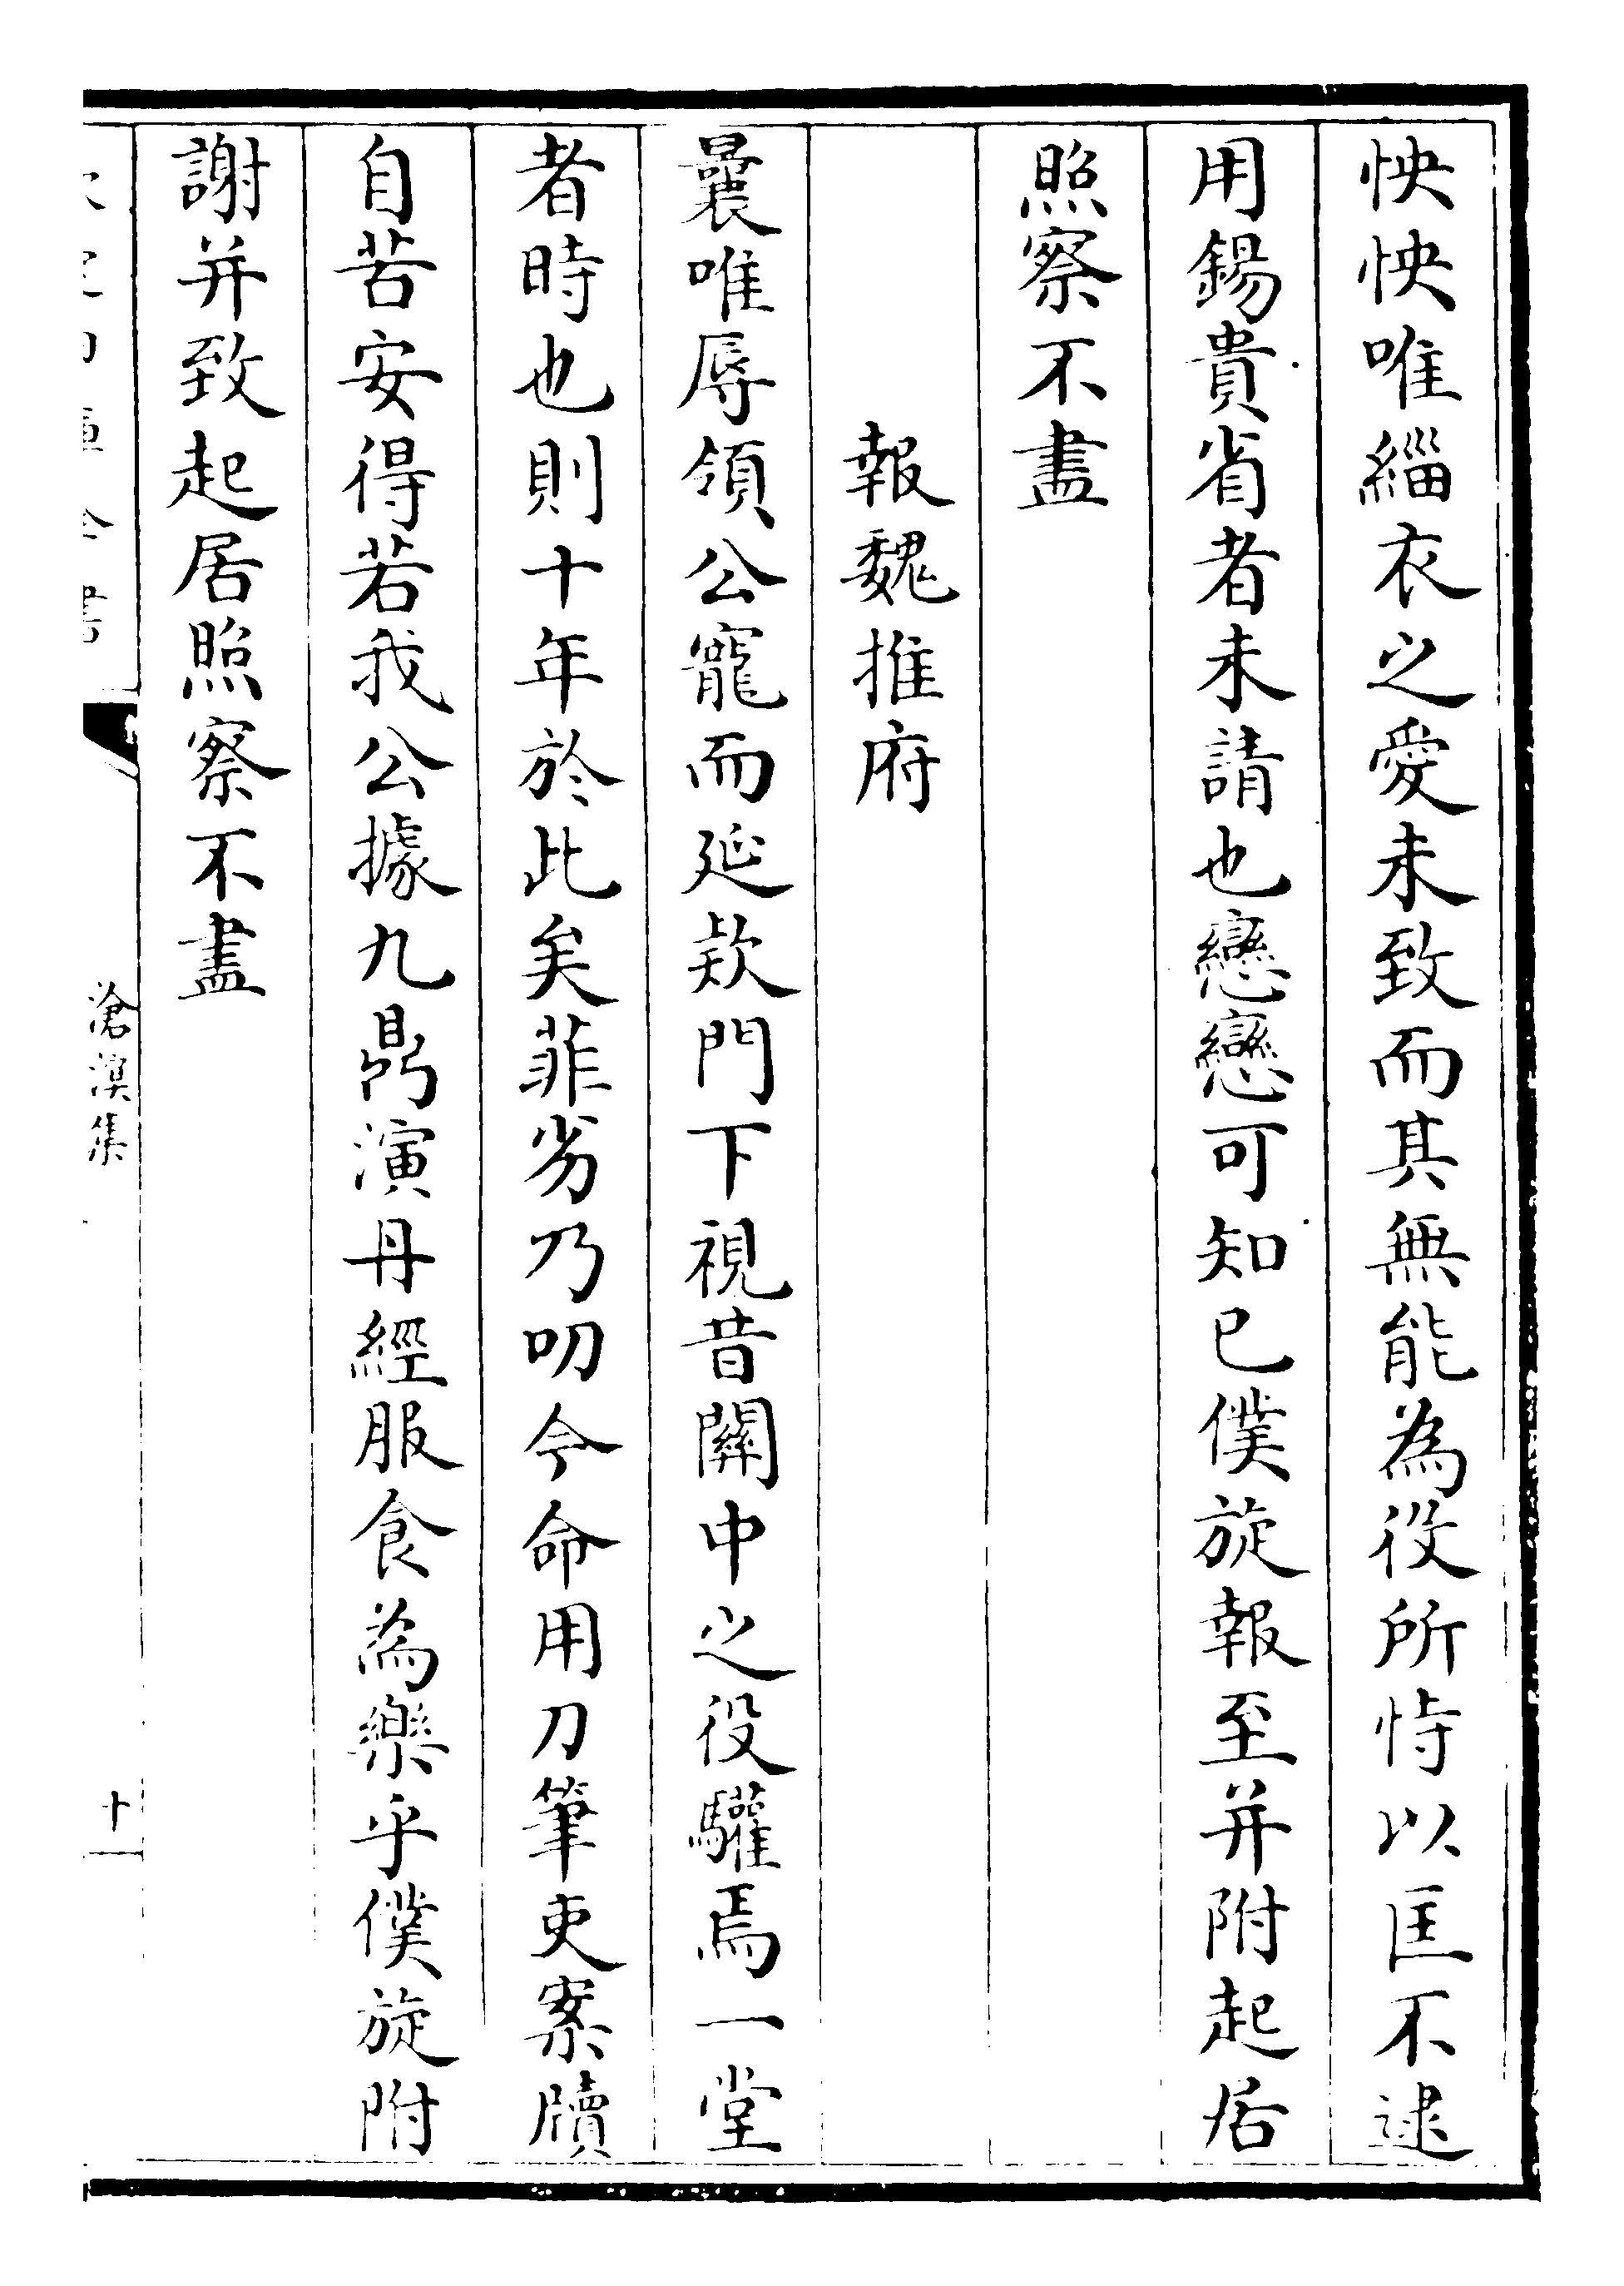 怏怏唯緇衣之愛未致而其無能為役所恃以匡不逮
用錫貴省者未請也戀戀可知已僕旋報至并附起居
照察不盡
報魏推府
曩唯辱領公寵而延欵門下視昔闗中之役驩焉一堂
者時也則十年於此矣菲劣乃叨今命用刀筆吏案牘
自苦安得若我公據九鼎演丹經服食為樂乎僕旋附
謝并致起居照察不盡
滄溟集
十一